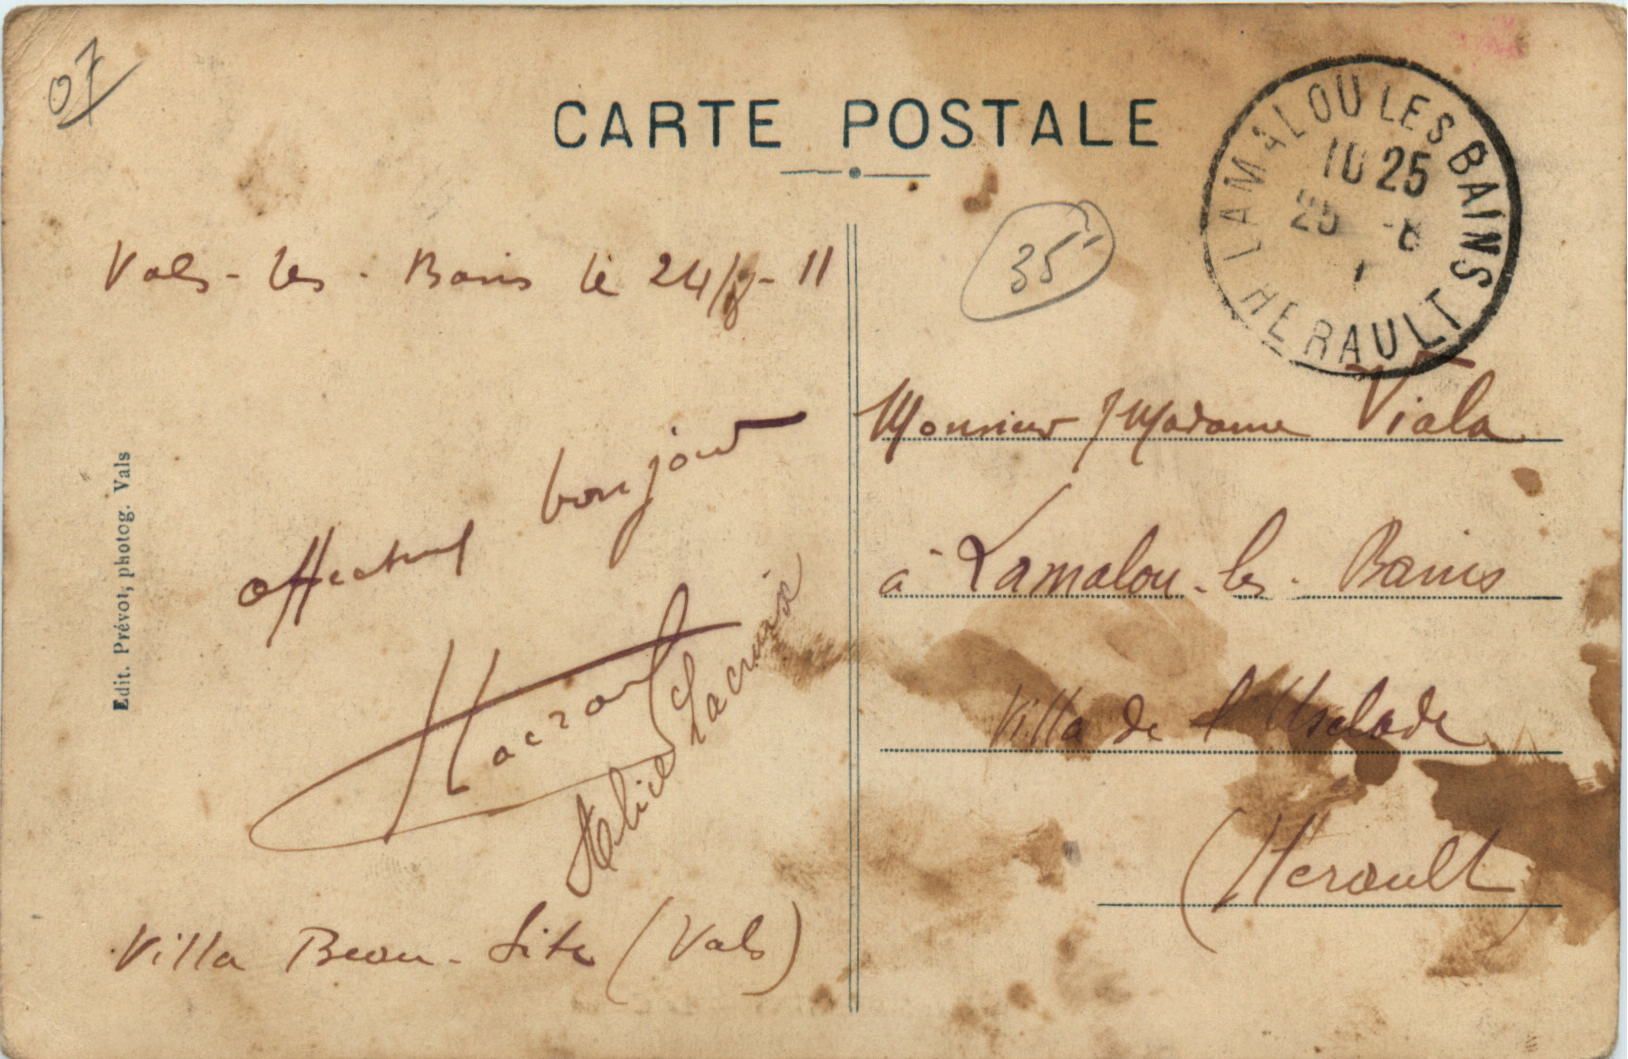 07
CARTE POSTALE
LAMALOU LES BAINS
10 25
25 -8
HERAULT
35
Vals-les-Bains le 24/8-11
affectueux bonjour
Alice Lacroix
Villa Beau-Site (Vals)
Edit. Prévot, photog. Vals
Monsieur / Madame Viala
à Lamalou-les-Bains
Villa de l'Usclade
(Herault)